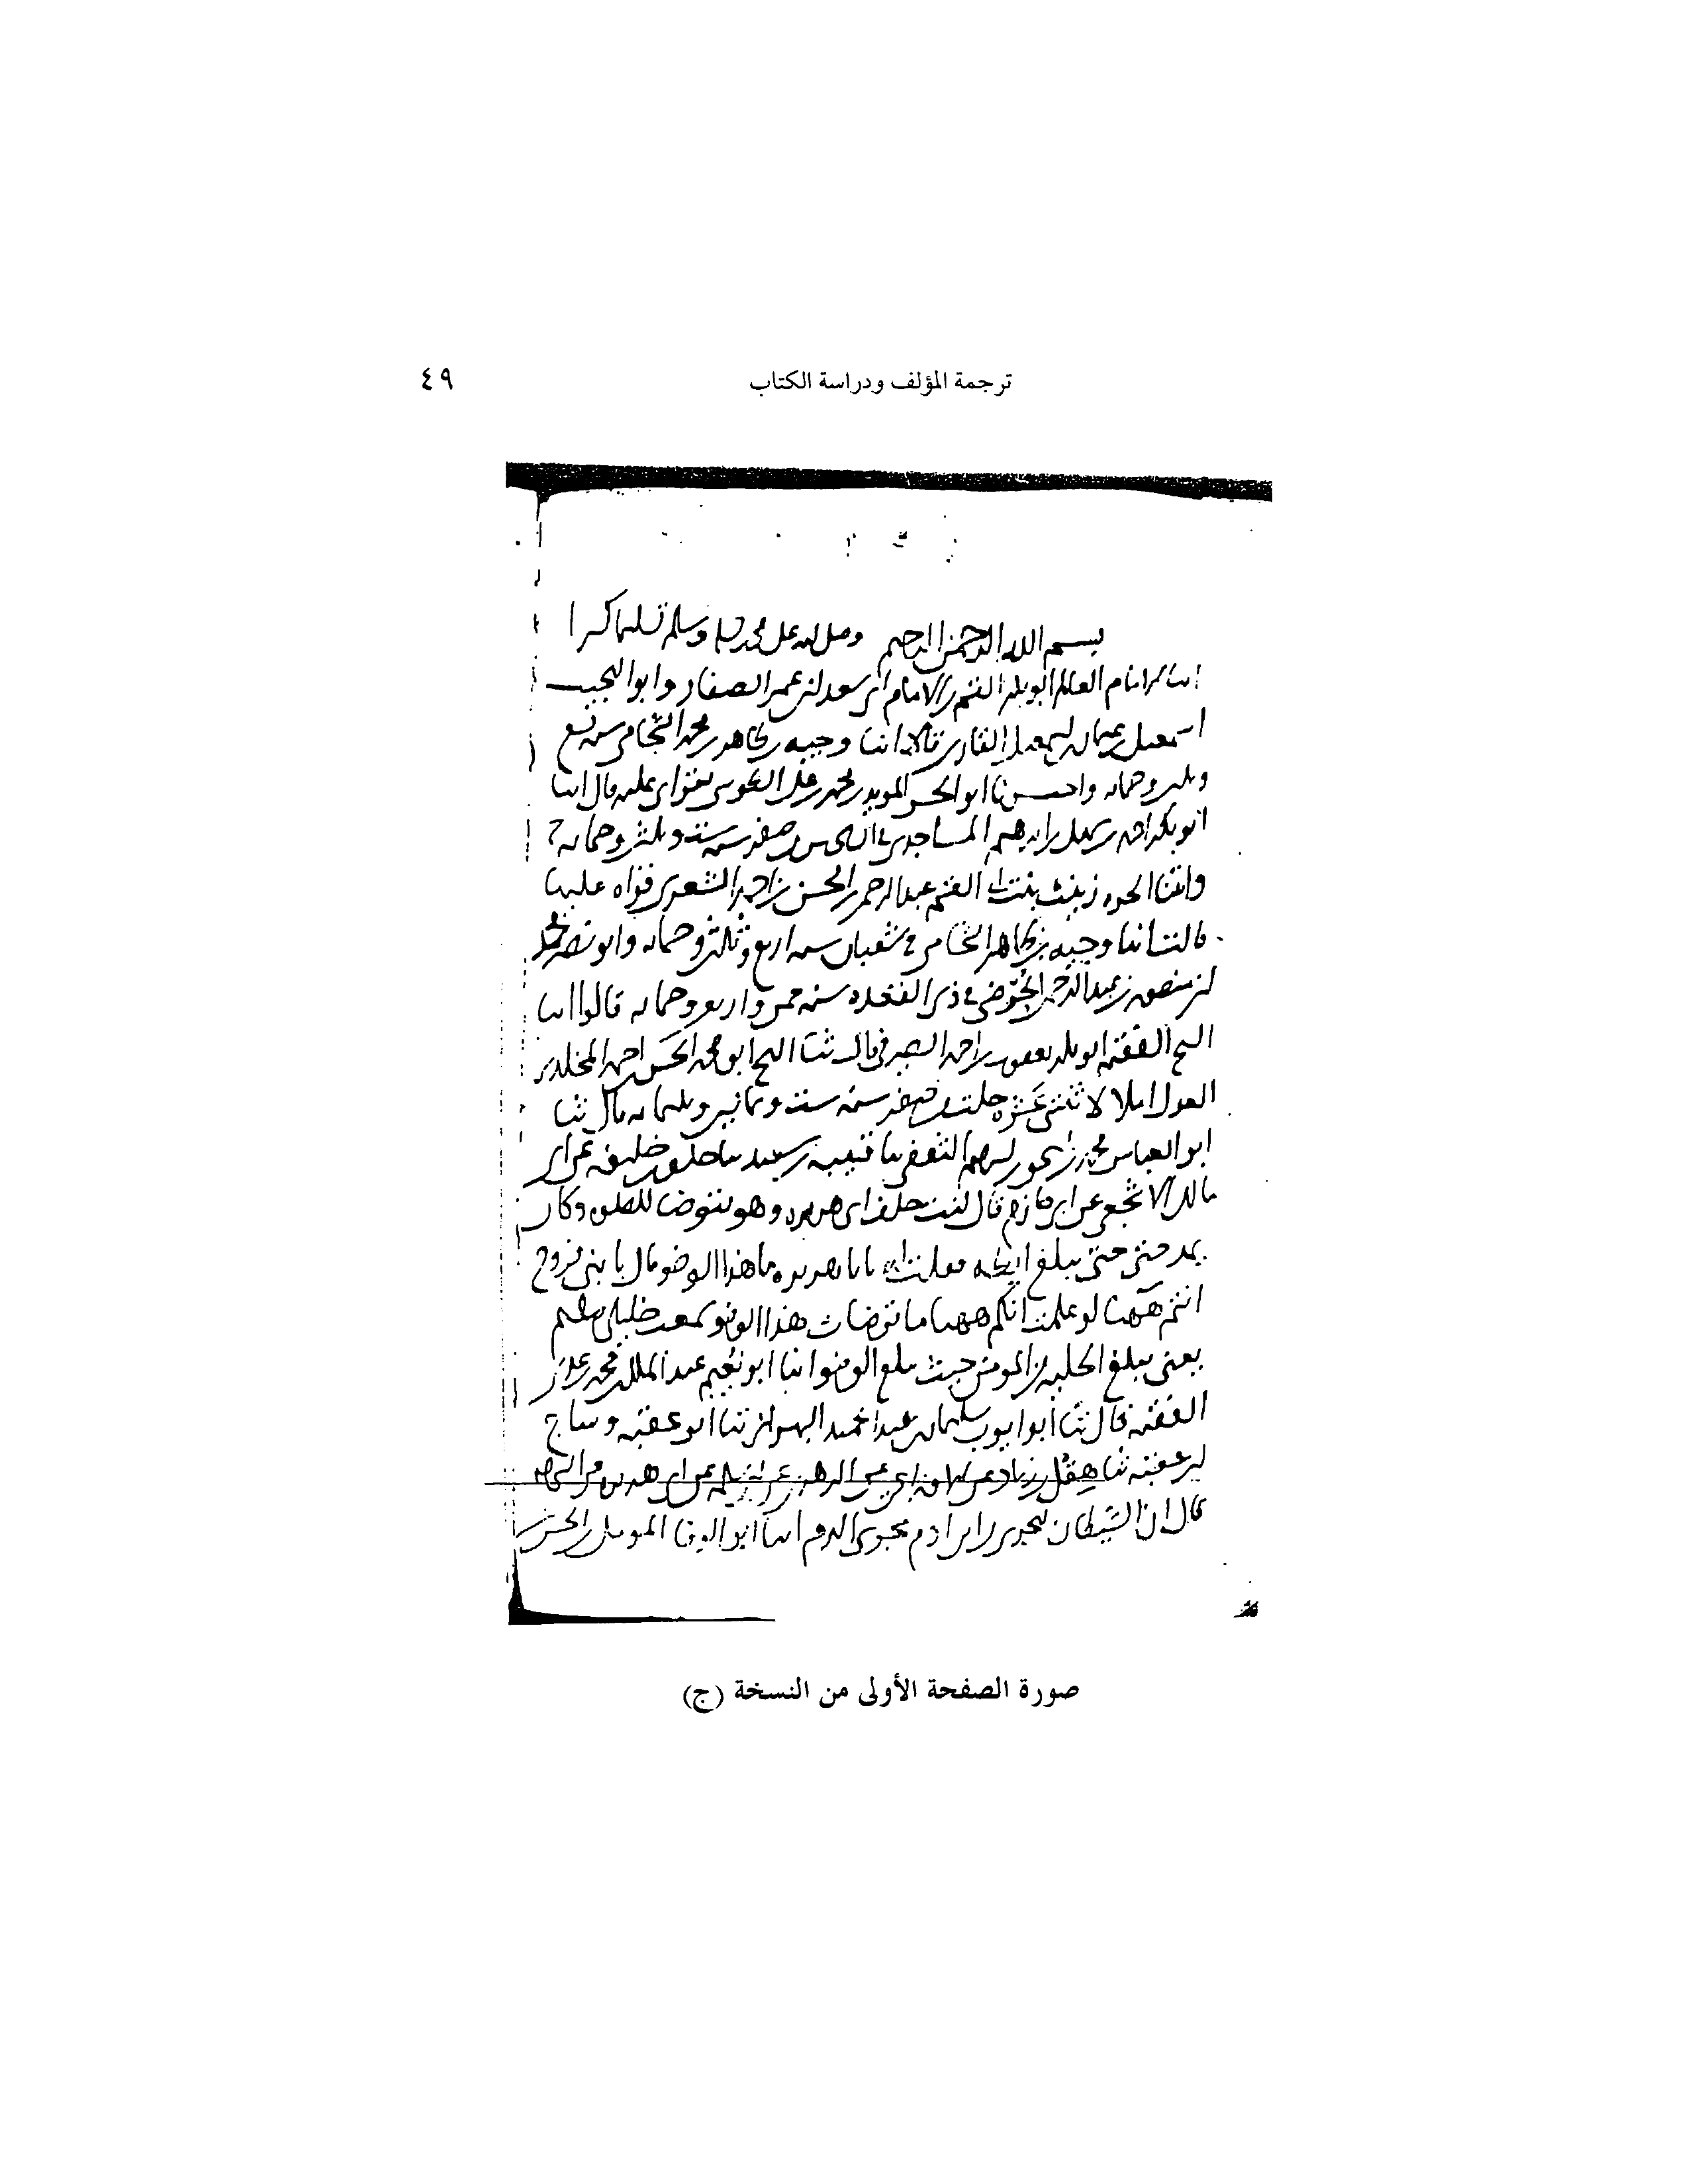 ترجمة المؤلف ودراسة الكتاب
٤٩
بسم الله الرحمن الرحيم وصلى الله على محمد وسلم تسليما كثيرا
الامام العالم ابو بكر القسم الامام ابي سعد بن عمر الصفار وابو النجيب
اسمعيل بن عثمان بن اسمعيل القاري قالا انبا وجيه بن طاهر بن محمد الشحامي سنة تسع
وثلثين وخمسمايه ابو الحسن المويد بن محمد بن علي الطوسي بقراتي عليه قال انبا
ابو بكر احمد بن سهل بن ابرهيم المساجدي في صفر سنة ست وثلثين وخمسمايه ح
وانبتنا الحره زينب بنت ابي القسم عبد الرحمن بن الحسن بن احمد الشعري قراه عليها
قالت انبا وجيه بن طاهر الشحامي في شعبان سنه اربع وثلثين وخمسمايه وابو نصر محمد
بن منصور بن عبد الرحيم الحُرْضي في ذي القعده سنه خمس واربعين وخمسمايه قالوا انبا
الشيخ الفقيه ابو بكر يعقوب بن احمد الصيرفي قال ثنا الشيخ ابو محمد الحسن بن احمد المخلدي
العدل املا لاثنتي عشره خلت من صفر سنه ست وثمانين وثلثمايه قال ثنا
ابو العباس محمد بن اسحق بن ابرهيم الثقفي ثنا قتيبه بن سعيد ثنا خلف بن خليفه عن ابي
مالك الاشجعي عن ابي حازم قال كنت خلف ابي هريره وهو يتوضا للصلوه وكان
يمد حتى يبلغ ابطه فقلت له يابا هريره ما هذا الوضو قال يا بني فروخ
انتم ههنا لو علمت انكم ههنا ما توضات هذا الوضو سمعت خليلي صلى الله عليه وسلم
يعني يبلغ الحليه من المومن حيث يبلغ الوضو انبا ابو نُعيم عبد الملك بن محمد بن عدي
الفقيه قال ثنا ابو ايوب سليمن بن عبد الحميد البهراني ثنا ابو عقبه وساج
بن عقبه ثنا هِقْل بن زياد عن الاوزاعي عن الزهري عن ابي سلمه عن ابي هريره عن النبي
قال ان الشيطان ليجري من ابن ادم مجرى الدم انبا ابو الوفا المومل بن الحسن
صورة الصفحة الأولى من النسخة (ج)